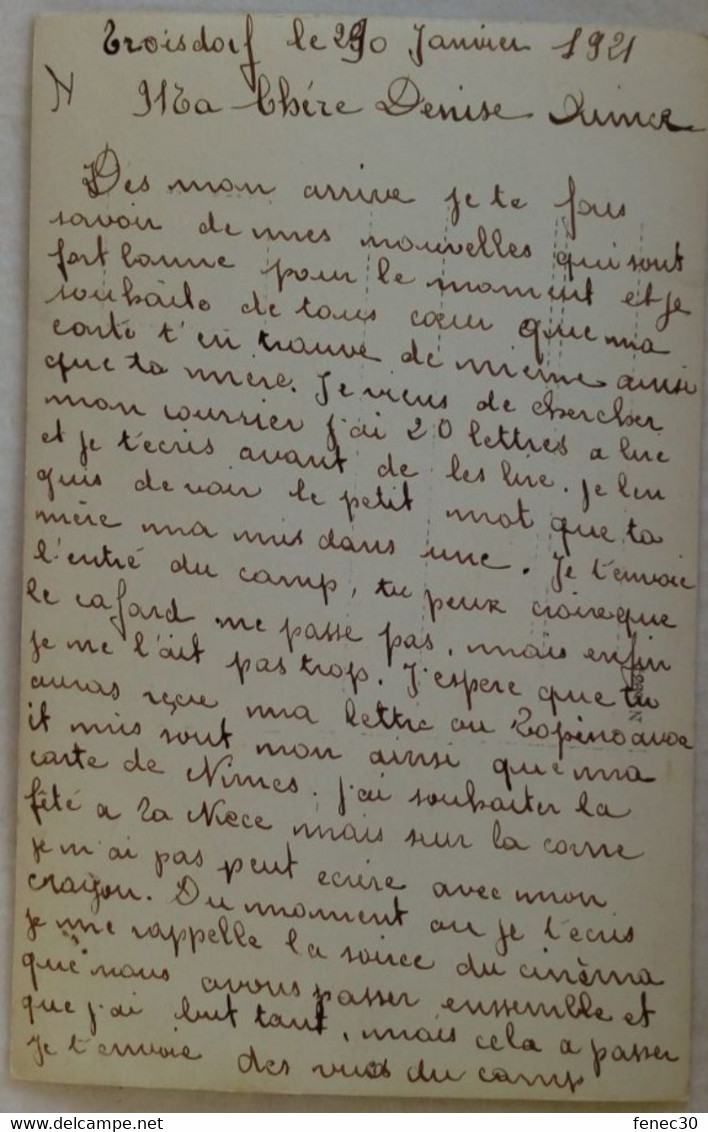 Troisdorf le 290 Janvier 1921
N Ma Chére Denise
Dés mon arrive je te fais
savoir de mes nouvelles qui sont
fort bonne pour le moment et je
souhaite de tous cœur que ma
carte t'en trouve de meme ainsi
que ta mère. Je viens de chercher
mon courrier j'ai 20 lettres a lire
et je t'ecris avant de les lire. Je
de voir le petit mot que ta
mère ma mis dans une. Je t'envoie
l'entré du camp, tu peux croire que
le cafard me passe pas, mais enfin
je me l'ait pas trop. J'espere que tu
auras reçue ma lettre ou
it mis sout mon ainsi que ma
carte de Nimes, j'ai souhaiter la
fété a ta Niece mais sur la corne
je n'ai pas peut ecrire avec mon
crayon. Du moment ou je t'ecris
je me rappelle la soirée du cinéma
que nous avons passer ensemble et
que j'ai but tant, mais cela a passer
Je t'envoie des vues du camp
fenec30